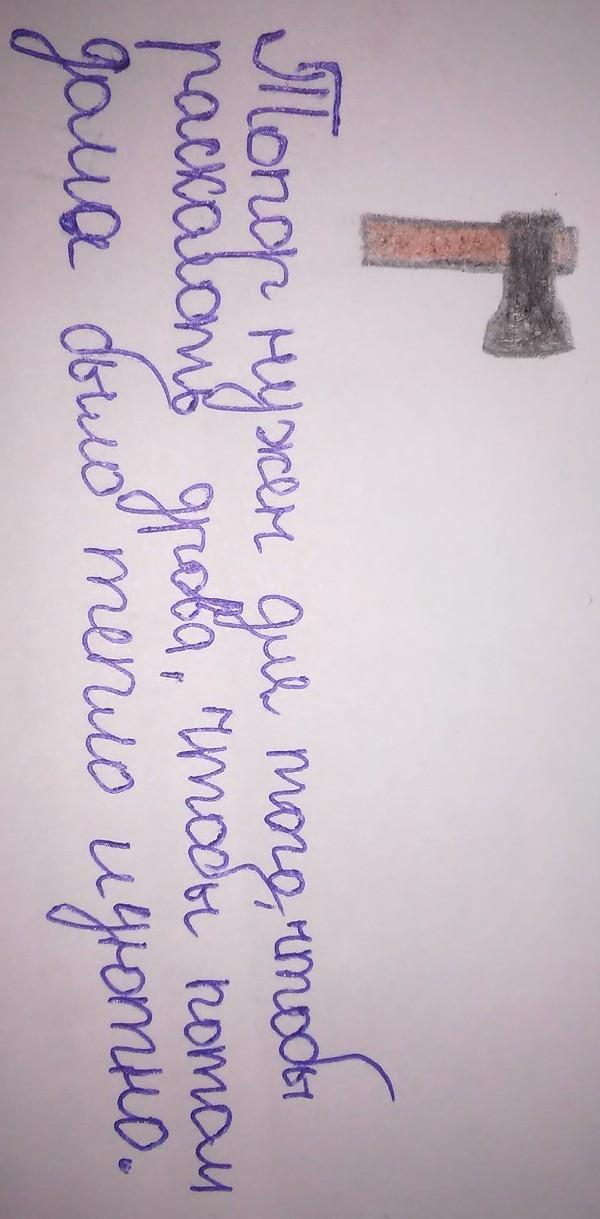 Топор нужен для того, чтобы
раскалоть дрова, чтобы потом
дома было тепло и уютно.